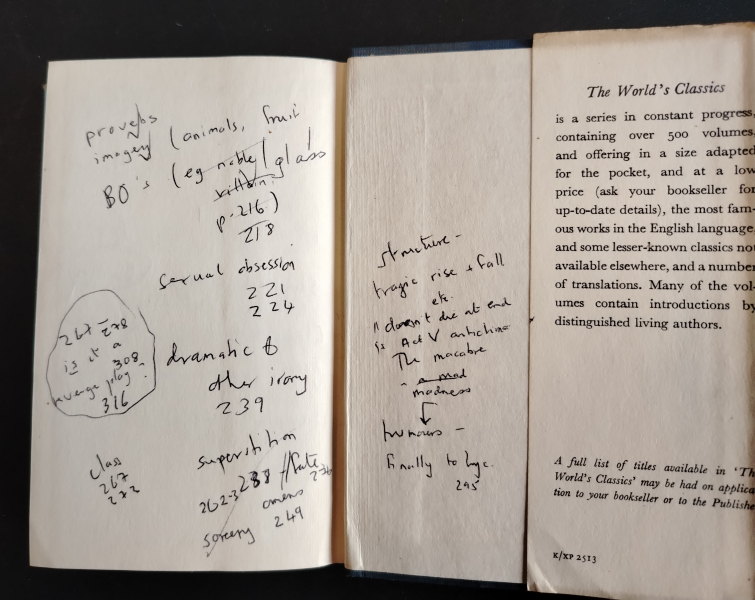 proverbs
imagery (animals, fruit
BO's (eg noble / glass
villain
p. 216)
218
sexual obsession
221
224
267 - 278
is it a
308
revenge play?
316
dramatic &
other irony
239
class
267
272
superstition
262-3 238 / fate
omens
sorcery 249
structure -
tragic rise + fall
etc.
doesn't die at end
is Act V anticlimax
The macabre
- a mad
madness
↓
humours -
finally to
295
The World's Classics
is a series in constant progress,
containing over 500 volumes,
and offering in a size adapted
for the pocket, and at a low
price (ask your bookseller for
up-to-date details), the most fam-
ous works in the English language,
and some lesser-known classics not
available elsewhere, and a number
of translations. Many of the vol-
umes contain introductions by
distinguished living authors.
A full list of titles available in 'The
World's Classics' may be had on applica-
tion to your bookseller or to the Publishe
K/XP 2513